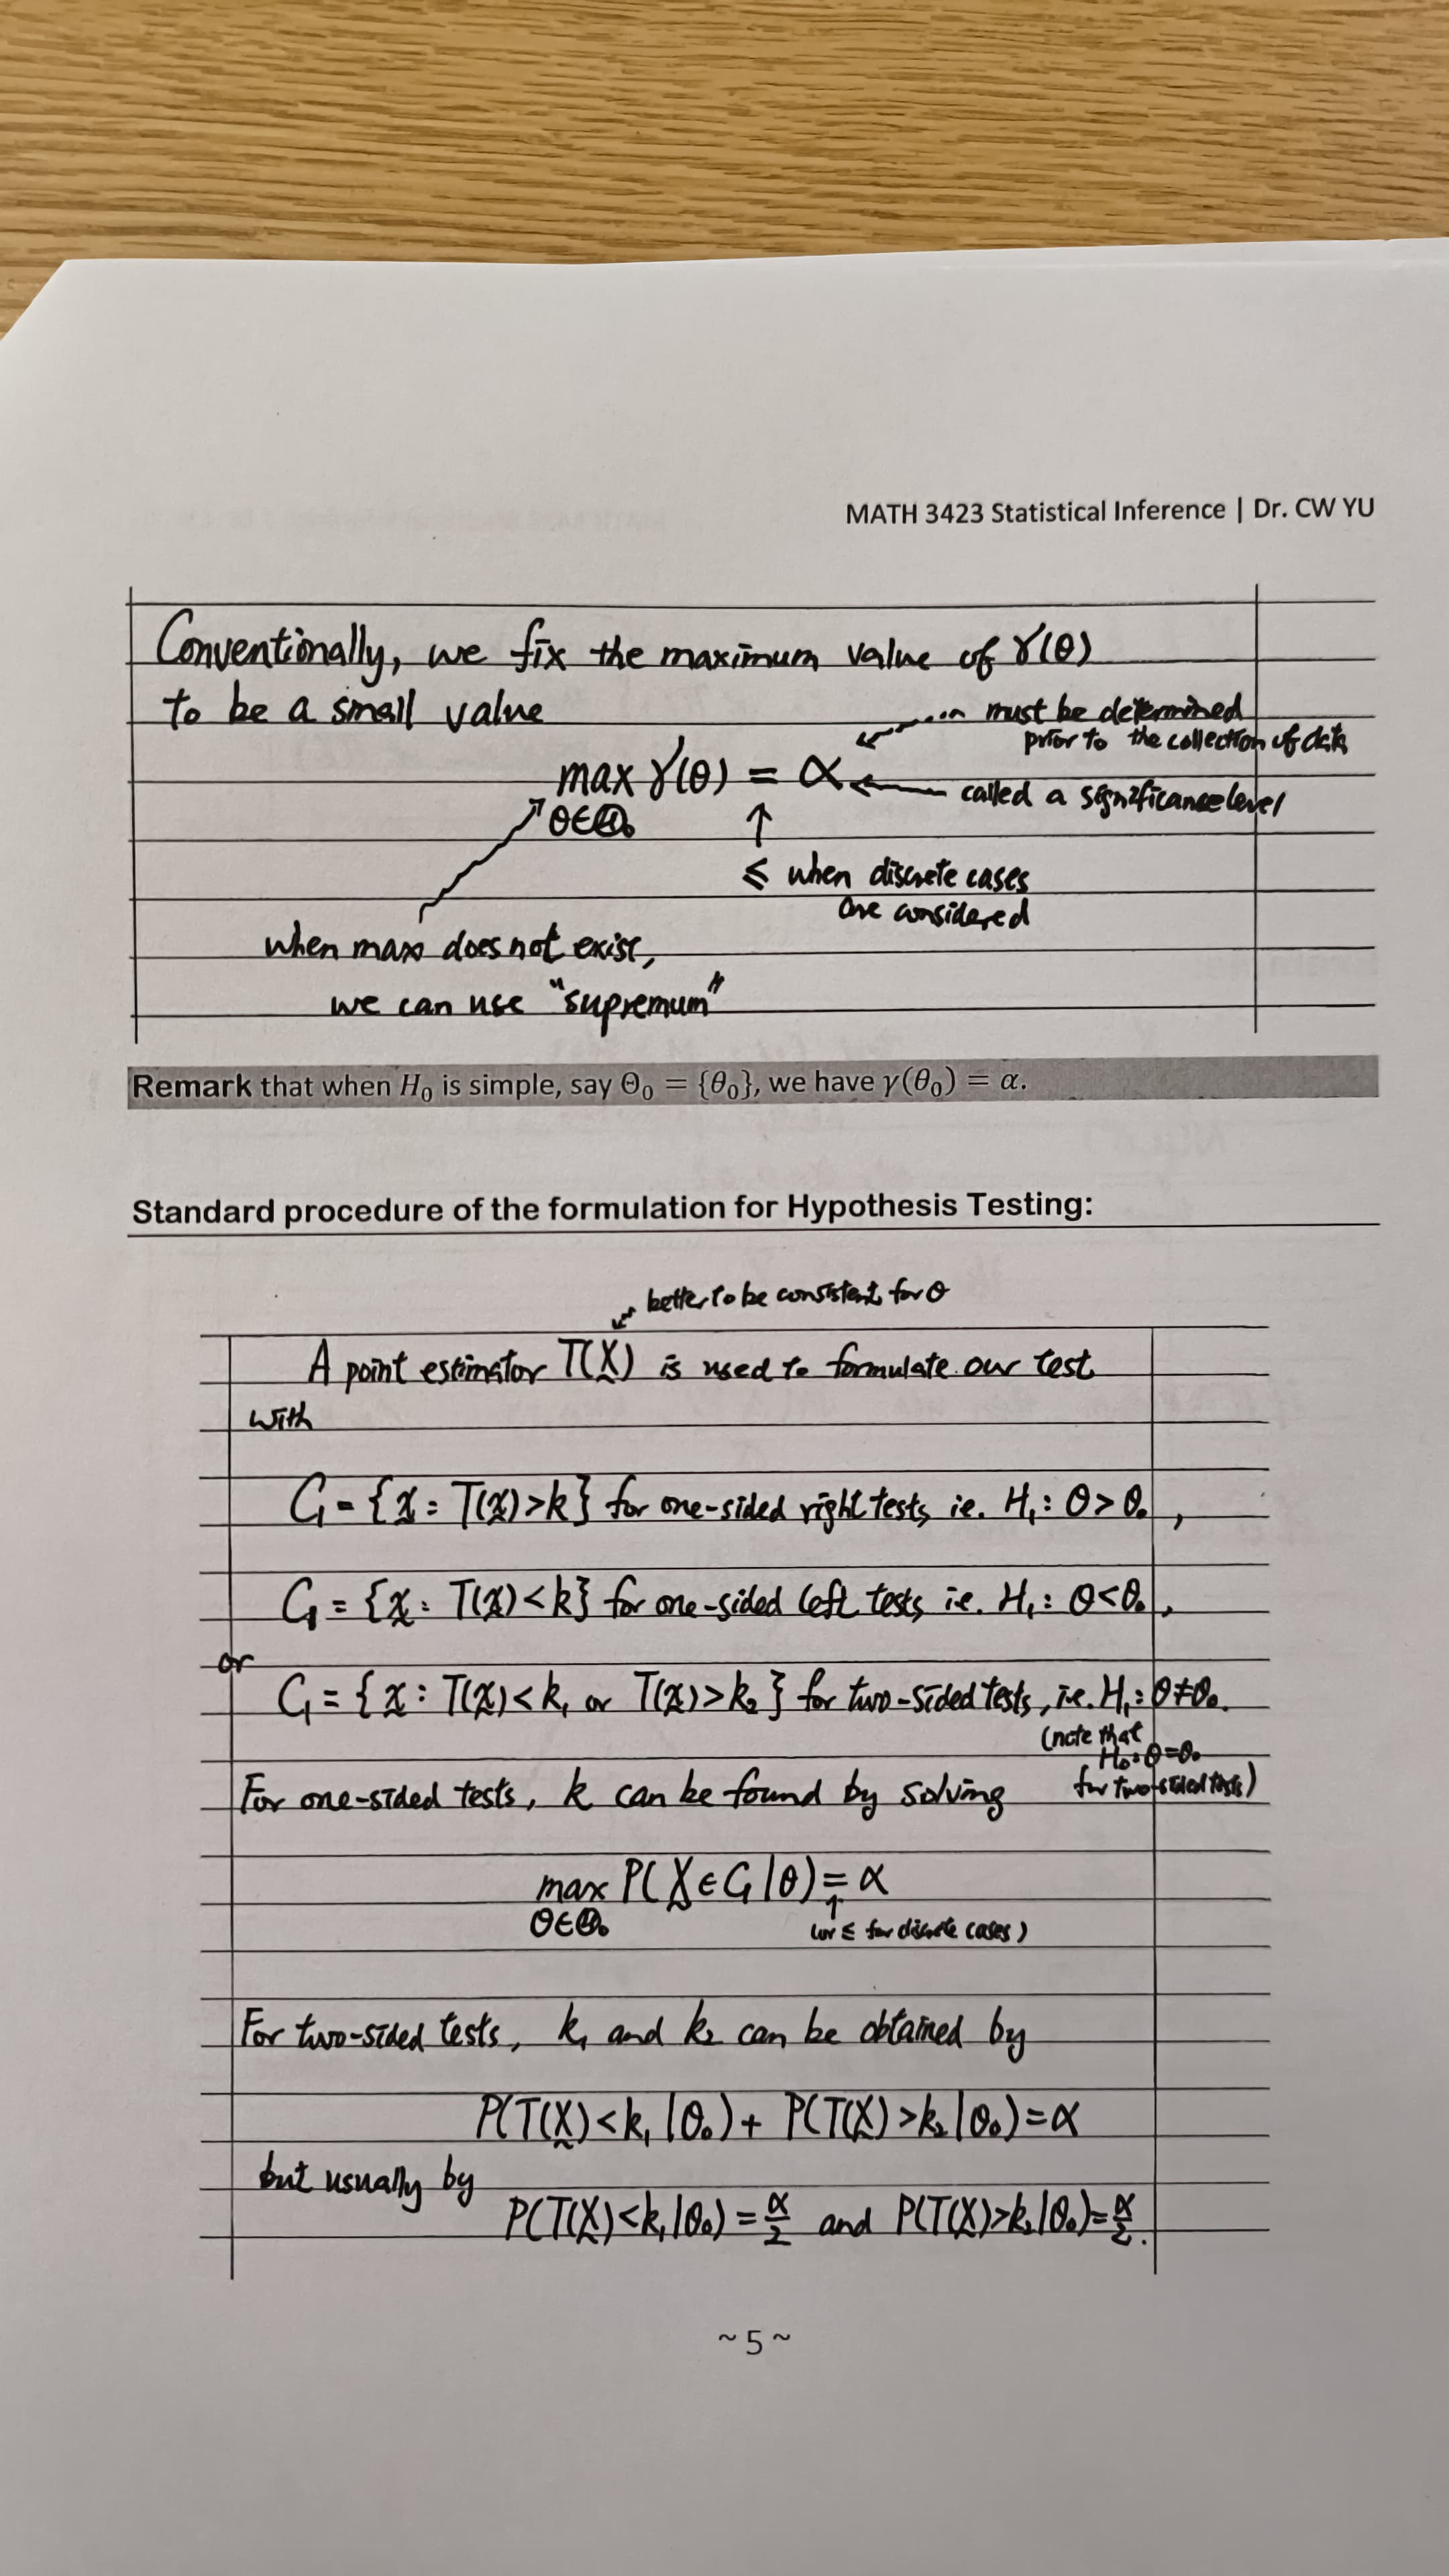 MATH 3423 Statistical Inference | Dr. CW YU
Conventionally, we fix the maximum value of γ(θ)
to be a small value
must be determined
prior to the collection of data
max γ(θ) = α
θ∈Θ₀
called a significance level
≤ when discrete cases
are considered
when max does not exist,
we can use "supremum"
Remark that when H₀ is simple, say Θ₀ = {θ₀}, we have γ(θ₀) = α.
Standard procedure of the formulation for Hypothesis Testing:
better to be consistent for θ
A point estimator T(X̰) is used to formulate our test
with
C₁ = {x̰ : T(x̰) > k} for one-sided right tests ie. H₁: θ > θ₀,
C₁ = {x̰ : T(x̰) < k} for one-sided left tests i.e. H₁: θ < θ₀,
or
C₁ = {x̰ : T(x̰) < k₁ or T(x̰) > k₂} for two-sided tests, i.e. H₁: θ ≠ θ₀.
(note that
H₀: θ = θ₀
for two-sided tests)
For one-sided tests, k can be found by solving
max P(X̰ ∈ C₁ | θ) = α
θ∈Θ₀
(or ≤ for discrete cases)
For two-sided tests, k₁ and k₂ can be obtained by
P(T(X̰) < k₁ | θ₀) + P(T(X̰) > k₂ | θ₀) = α
but usually by
P(T(X̰) < k₁ | θ₀) = α/2 and P(T(X̰) > k₂ | θ₀) = α/2.
~ 5 ~